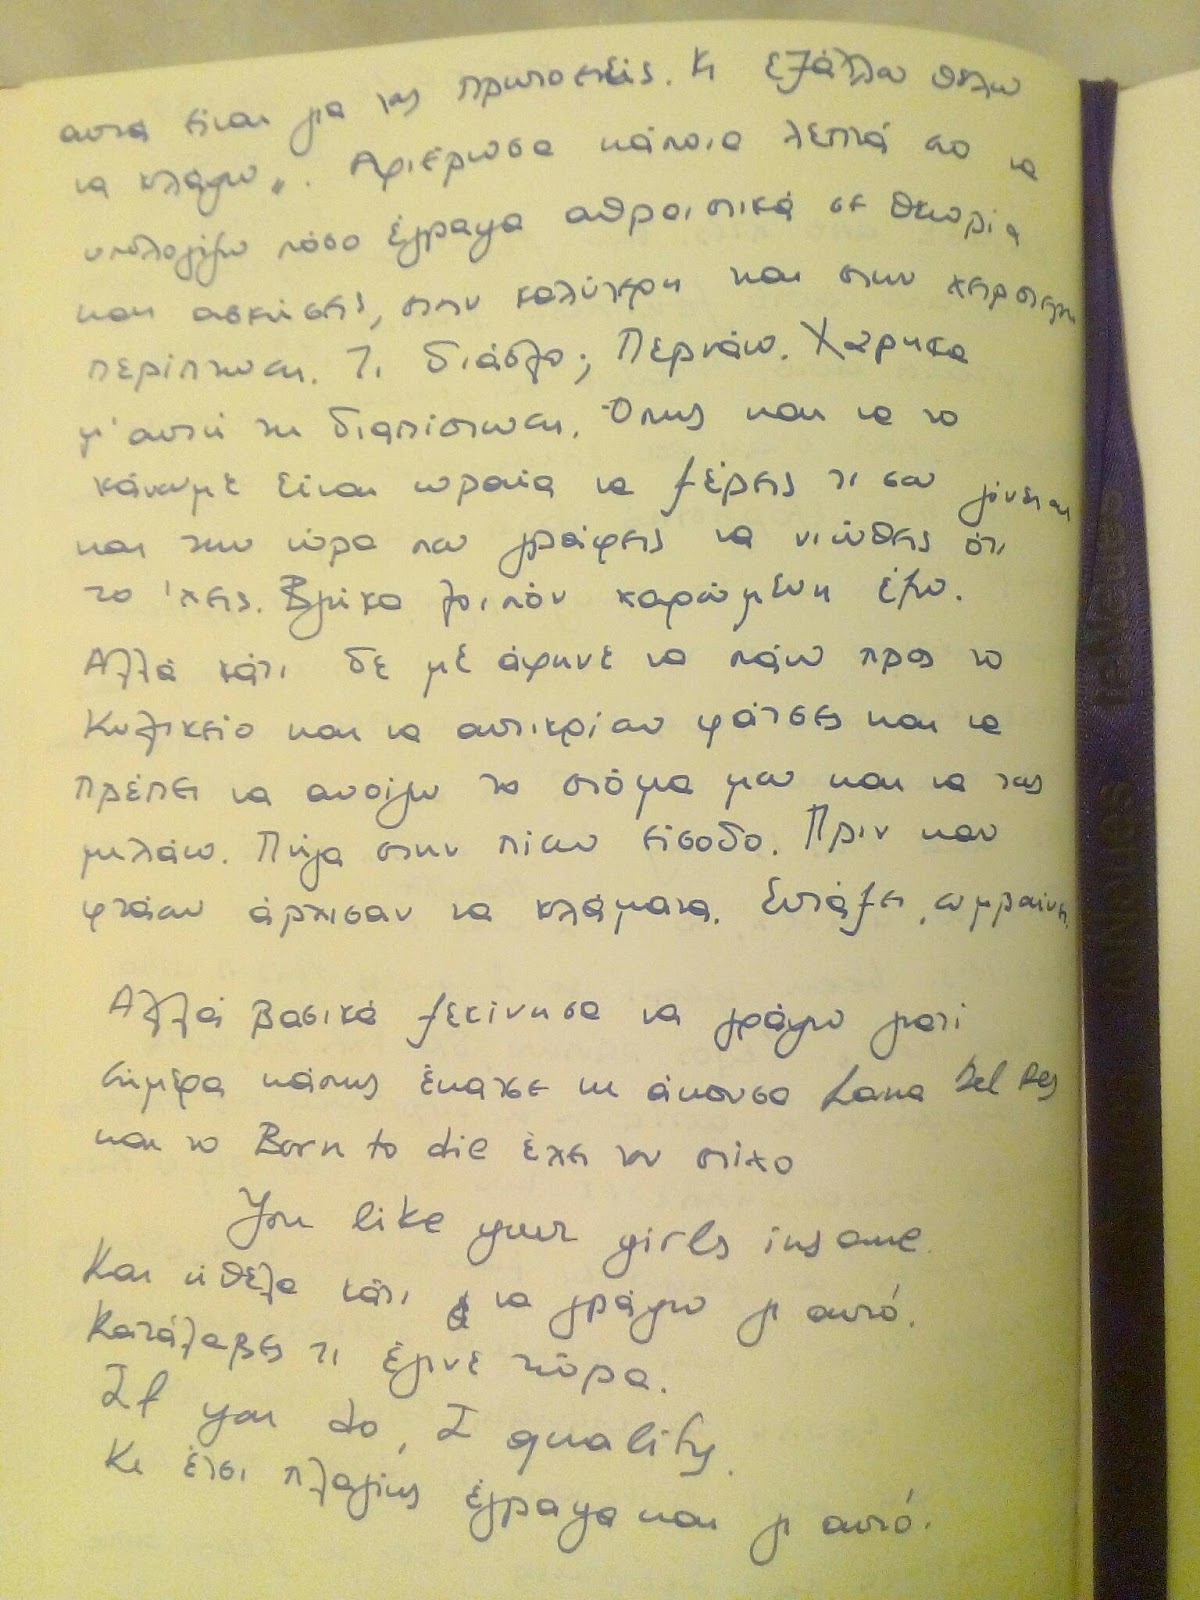 αυτά είναι για τους πρωτοετείς. Κι εξάλλου θέλω
να κλάψω". Αφιέρωσα κάποια λεπτά στο να
υπολογίζω πόσο έγραψα αθροιστικά σε θεωρία
και ασκήσεις, στην καλύτερη και στην χειρότερη
περίπτωση. Τι διάολο; Περνάω. Χάρηκα
μ' αυτή τη διαπίστωση. Όπως και να το
κάνουμε είναι ωραία να ξέρεις τι σου γίνεται
και την ώρα που γράφεις να νιώθεις ότι
το 'χεις. Βγήκα λοιπόν χαρούμενη έξω.
Αλλά κάτι δε με άφηνε να πάω προς το
Κυλικείο και να αντικρίσω φάτσες και να
πρέπει να ανοίξω το στόμα μου και να τους
μιλάω. Πήγα στην πίσω είσοδο. Πριν καν
φτάσω άρχισαν τα κλάματα. Εντάξει, συμβαίνει.
Αλλά βασικά ξεκίνησα να γράψω γιατί
σήμερα κάπως έκατσε κι άκουσα Lana Del Rey
και το Born to die έχει τον στίχο
You like your girls insane.
Και ήθελα κάτι να γράψω γι αυτό.
Κατάλαβες τι έγινε τώρα.
If you do, I qualify.
Κι έτσι πλαγίως έγραψα και γι αυτό.